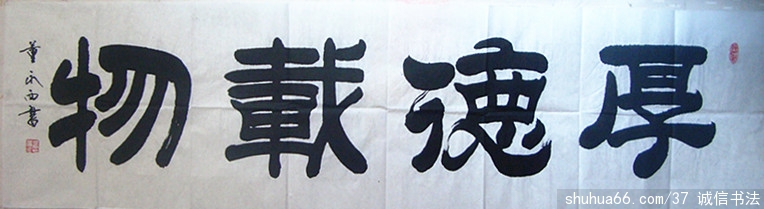 厚德載物
董永西書
shuhua66.com/37 诚信书法